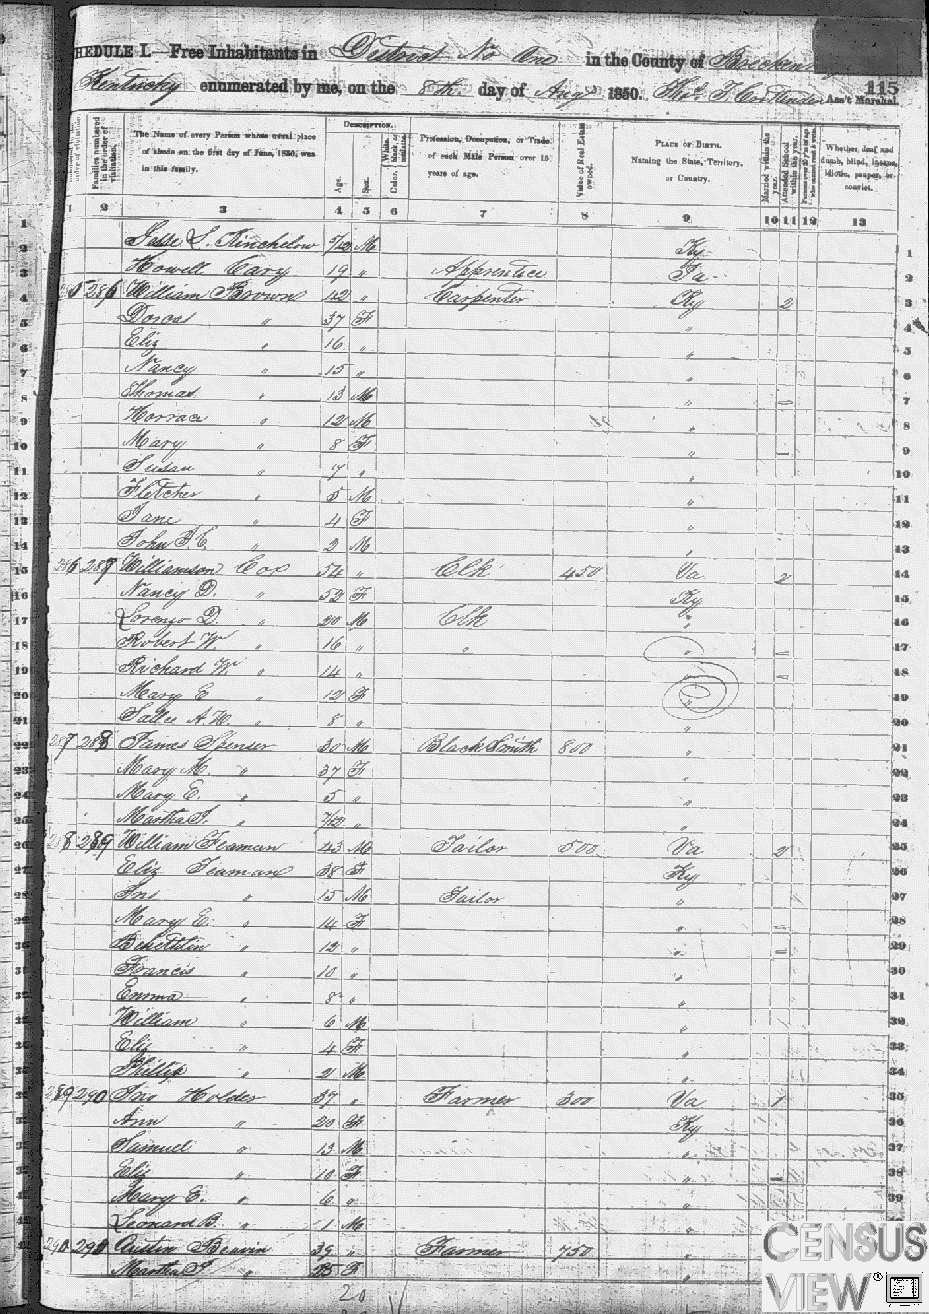 SCHEDULE I.—Free Inhabitants in District No One in the County of
Kentucky enumerated by me, on the 8th day of Aug 1850. Ass't Marshal.
115
Families numbered in the order of visitation. The Name of every Person whose usual place of abode on the first day of June, 1850, was in this family. DESCRIPTION. Age. Sex. Color, White, black or mulatto. Profession, Occupation, or Trade of each Male Person over 15 years of age. Value of Real Estate owned. PLACE OF BIRTH. Naming the State, Territory, or Country. Married within the year. Attended School within the year. Whether deaf and dumb, blind, insane, idiotic, pauper, or convict.
1 2 3 4 5 6 7 8 9 10 11 12 13
L. Kinchelow M Ky 1
Howell Cary 19 " Apprentice 2
286 William Brown 42 " Carpenter Ky 2 3
Dorcas " 37 F " 4
Eliz " 16 " " 5
Nancy " 15 " " 6
Thomas " 13 M " 7
Horrace " 12 M " 8
Mary " 8 F " 9
Susan " 7 " " 10
Fletcher " 5 M " 11
Jane " 4 F " 12
John " 2 M " 13
Williamson Cox 54 " Clk 450 Va 2 14
Nancy D. " 52 F Ky 15
Lorenzo D. " 20 M Clk " 16
Robert W. " 16 " " " 17
Richard W. " 14 " " 18
Mary E " 12 F " 19
Sallee A. W. " 8 " " 20
287 288 James Spenser 30 M Black Smith 800 " 21
Mary M. " 37 F " 22
Mary E. " 5 " " 23
Martha " " " 24
288 289 William Teaman 43 M Tailor 500 Va 2 25
Eliz Teaman 38 F Ky 26
Jns " 15 M Tailor " 27
Mary E. " 14 F " 28
" 12 " " 29
Francis " 10 " " 30
Emma " 8 " " 31
William " 6 M " 32
Eliz " 4 F " 33
Phillip " 2 M " 34
289 290 Holder 37 " Farmer 300 Va 1 35
Ann " 20 F Ky 36
Samuel " 13 M " 37
Eliz " 10 F " 38
Mary E. " 6 " " 39
Leonard B. " 1 M "
290 Austin Beavin 39 " Farmer 750 "
Martha " F "
20
CENSUS
VIEW